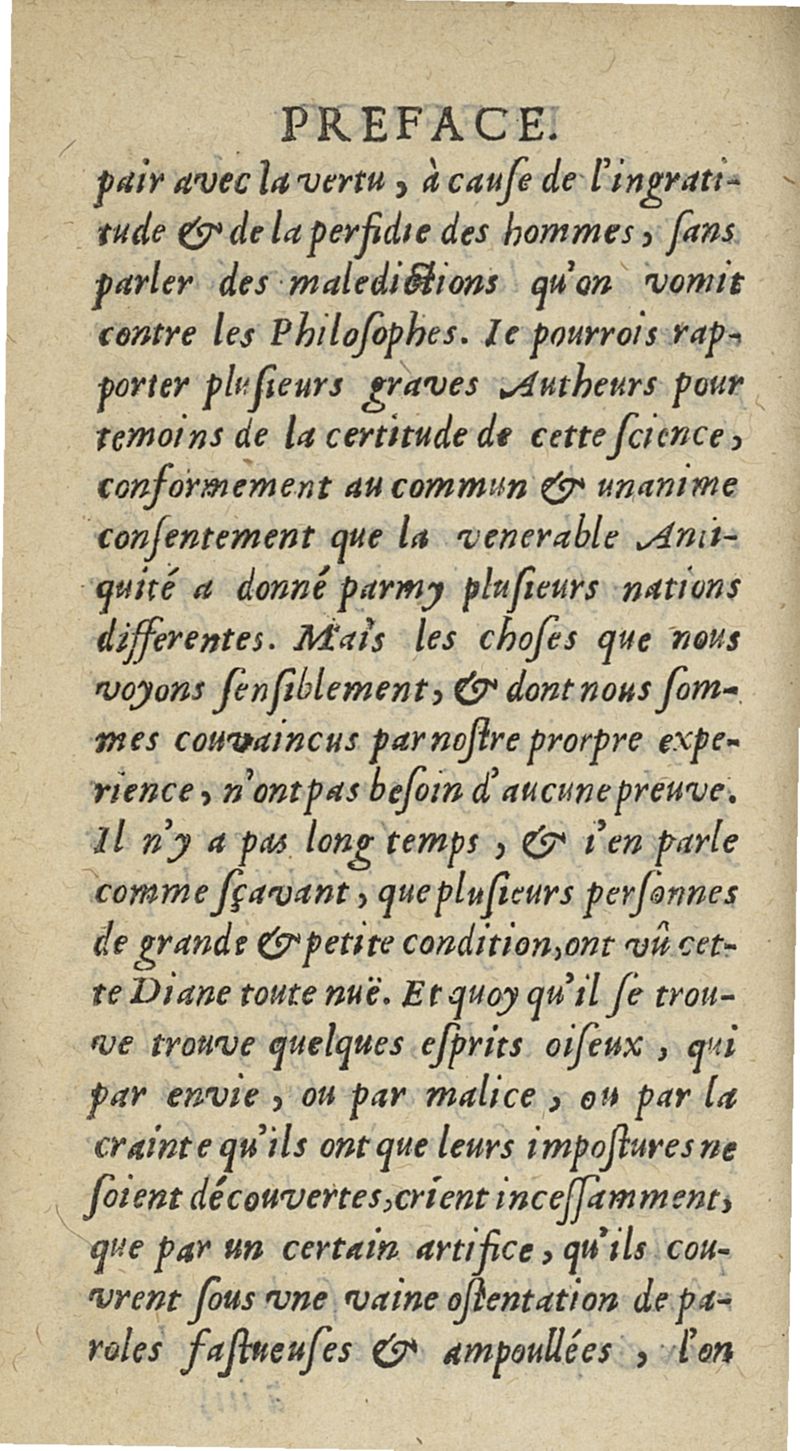 PREFACE.
pair avec la vertu, à cauſe de l'ingrati-
tude & de la perfidie des hommes, ſans
parler des maledictions qu'on vomit
contre les Philoſophes. Ie pourrois rap-
porter pluſieurs graves Autheurs pour
temoins de la certitude de cette ſcience,
conformement au commun & unanime
conſentement que la venerable Anti-
quité a donné parmy pluſieurs nations
differentes. Mais les choſes que nous
voyons ſenſiblement, & dont nous ſom-
mes couvaincus par noſtre prorpre expe-
rience, n'ont pas beſoin d'aucune preuve.
Il n'y a pas long temps, & i'en parle
comme ſçavant, que pluſieurs perſonnes
de grande & petite condition, ont vû cet-
te Diane toute nuë. Et quoy qu'il ſe trou-
ve trouve quelques eſprits oiſeux, qui
par envie, ou par malice, ou par la
crainte qu'ils ont que leurs impoſtures ne
ſoient découvertes, crient inceſſamment,
que par un certain artifice, qu'ils cou-
vrent ſous vne vaine oſtentation de pa-
roles faſtueuſes & ampoullées, l'on